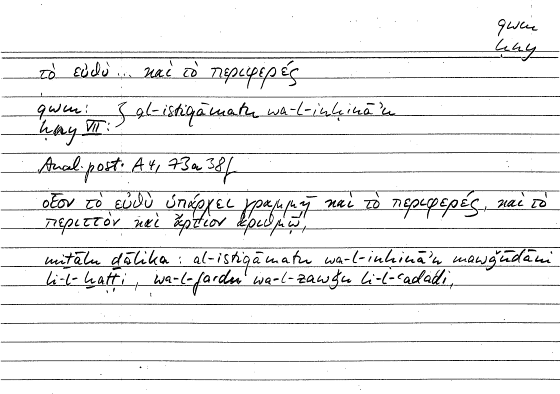 qwm
ḥny
τὸ εὐθὺ ... καὶ τὸ περιφερές
qwm: } al-istiqāmatu wa-l-inḥinā’u
ḥny VII:
Anal. post. A 4, 73a38f
οἷον τὸ εὐθὺ ὑπάρχει γραμμῇ καὶ τὸ περιφερές, καὶ τὸ
περιττὸν καὶ ἄρτιον ἀριθμῷ,
miṯālu ḏālika : al-istiqāmatu wa-l-inḥinā’u mawǧūdāni
li-l-ḫaṭṭi, wa-l-fardu wa-l-zawǧu li-l-‘adadi,